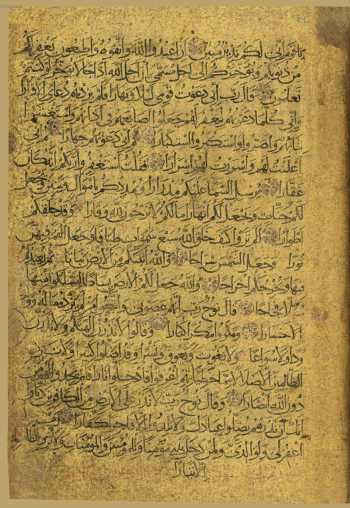 يا قوم اني لكم نذير مبين ان اعبدوا الله واتقوه واطيعون يغفر لكم
من ذنوبكم ويؤخركم الى اجل مسمى ان اجل الله اذا جاء لا يؤخر لو كنتم
تعلمون قال رب اني دعوت قومي ليلا ونهارا فلم يزدهم دعائي الا فرارا
واني كلما دعوتهم لتغفر لهم جعلوا اصابعهم في اذانهم واستغشوا
ثيابهم واصروا واستكبروا استكبارا ثم اني دعوتهم جهارا ثم اني
اعلنت لهم واسررت لهم اسرارا فقلت استغفروا ربكم انه كان
غفارا يرسل السماء عليكم مدرارا ويمددكم باموال وبنين ويجعل
لكم جنات ويجعل لكم انهارا ما لكم لا ترجون لله وقارا وقد خلقكم
اطوارا الم تروا كيف خلق الله سبع سموات طباقا وجعل القمر فيهن
نورا وجعل الشمس سراجا والله انبتكم من الارض نباتا ثم يعيدكم
فيها ويخرجكم اخراجا والله جعل لكم الارض بساطا لتسلكوا منها
سبلا فجاجا قال نوح رب انهم عصوني واتبعوا من لم يزده ماله وولده
الا خسارا ومكروا مكرا كبارا وقالوا لا تذرن الهتكم ولا تذرن
ودا ولا سواعا ولا يغوث ويعوق ونسرا وقد اضلوا كثيرا ولا تزد
الظالمين الا ضلالا مما خطيئاتهم اغرقوا فادخلوا نارا فلم يجدوا لهم من
دون الله انصارا وقال نوح رب لا تذر على الارض من الكافرين ديارا
انك ان تذرهم يضلوا عبادك ولا يلدوا الا فاجرا كفارا رب
اغفر لي ولوالدي ولمن دخل بيتي مؤمنا وللمؤمنين والمؤمنات ولا تزد الظالمين
الا تبارا